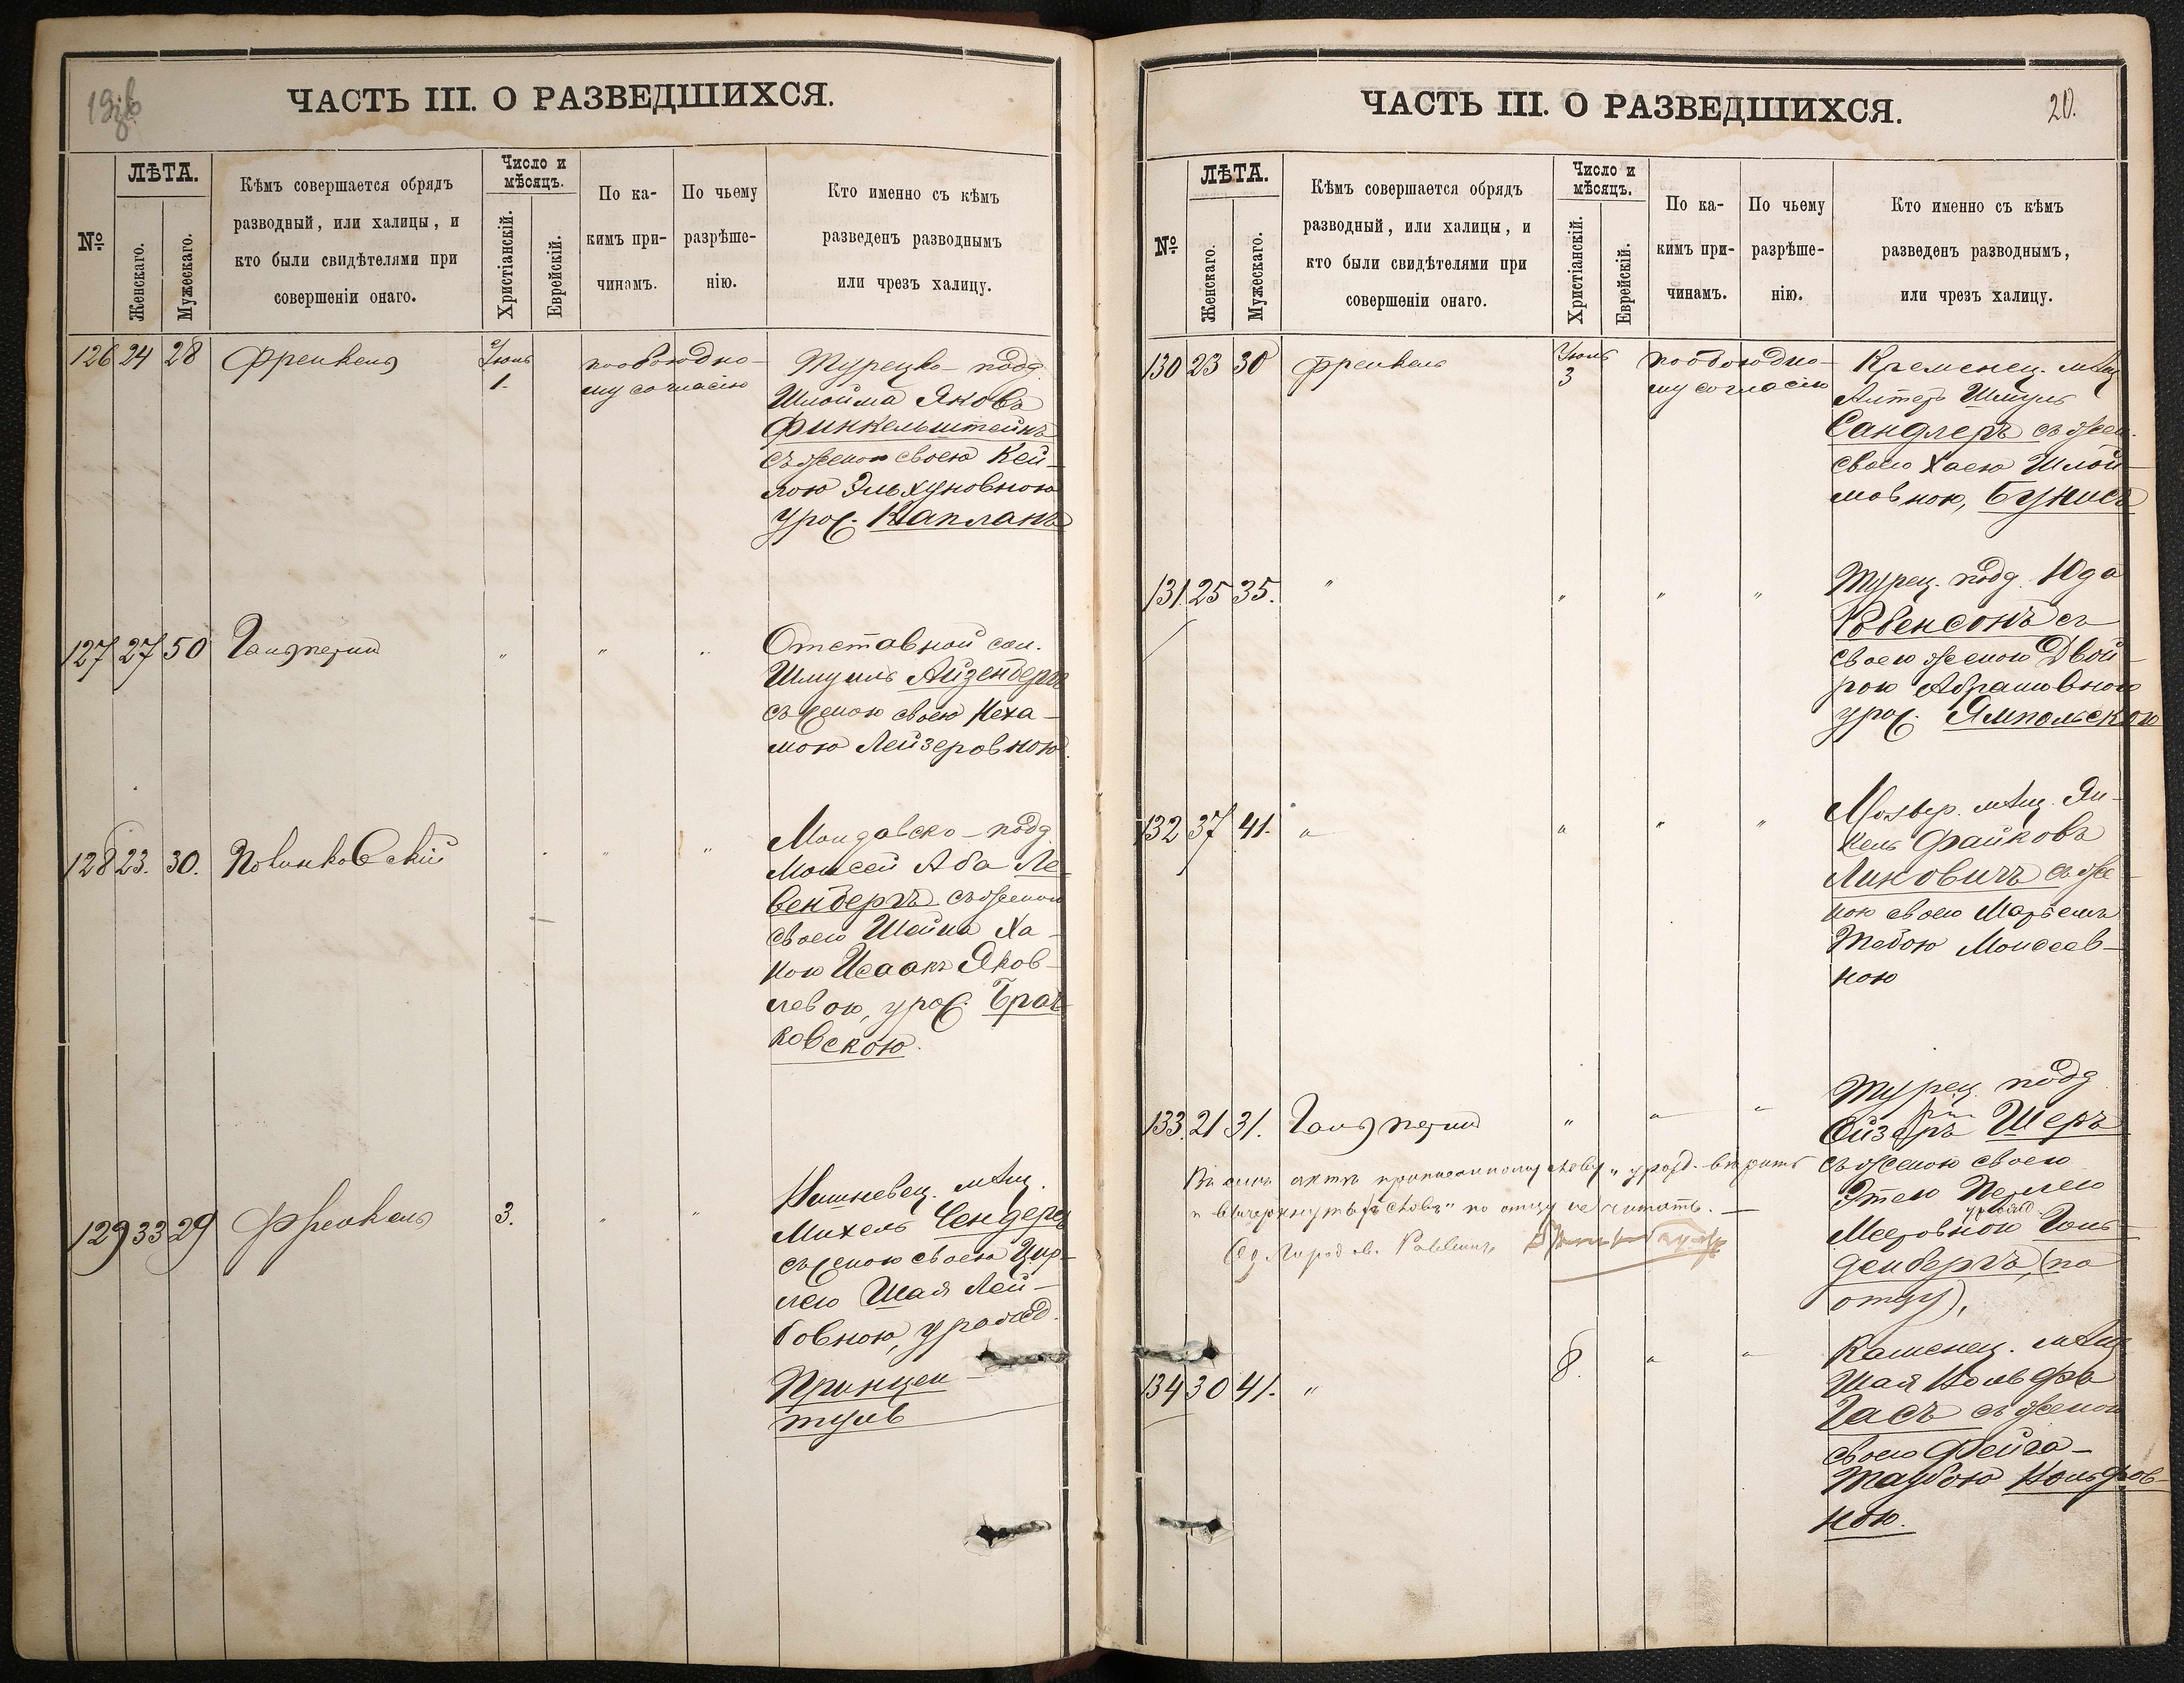 ЧАСТЬ III. О РАЗВЕДШИХСЯ.
№
ЛѢТА.
Женскаго.
Мужескаго.
Кѣмъ совершается обрядъ
разводный, или халицы, и
кто были свидѣтелями при
совершеніи онаго.
Число и
мѣсяцъ.
Христіанскій.
Еврейскій.
По ка-
кимъ при-
чинамъ.
По чьему
разрѣше-
нію.
Кто именно съ кѣмъ
разведенъ разводнымъ
или чрезъ халицу.
126 24 28 Френкель Іюль 1. по обоюдно-
му согласію
Турецко-подд.
Шлойма Яковъ
Финкельштейнъ
съ женою своею Кей-
лою Эльхуновною
урож. Капланъ
127 27 50 Гальперинъ " " "
Отставной сол.
Шмуиль Айзенбергъ
съ женою своею Неха-
мою Лейзеровною
128 23. 30. " "
Молдавско-подд
Моисей Аба Ле-
венбергъ съ женою
своею Шейна Ха-
ною Исаакъ Яков-
левою, урож.
ковскою.
129 33 29 Френкель 3. " "
Кишневец. мѣщ.
Михель Сендеръ
съ женою своею Цир-
лею Шая Лей-
бовною, урожд.
Принцен-
ЧАСТЬ III. О РАЗВЕДШИХСЯ.
20.
№
ЛѢТА.
Женскаго.
Мужескаго.
Кѣмъ совершается обрядъ
разводный, или халицы, и
кто были свидѣтелями при
совершеніи онаго.
Число и
мѣсяцъ.
Христіанскій.
Еврейскій.
По ка-
кимъ при-
чинамъ.
По чьему
разрѣше-
нію.
Кто именно съ кѣмъ
разведенъ разводнымъ,
или чрезъ халицу.
130 23 30 Френкель Іюль 3 по обоюдно-
му согласію
Кременец. мѣщ
Алтеръ Шмуль
Сандлеръ съ жен.
своею Хаею Шлой-
мовною, Бунисъ
131. 25 35. " " " "
Турец. подд. Юда
Робенсонъ съ
своею женою Двой-
рою Абрамовною
урож. Ямпольскою
132 37 41. " " " "
мѣщ. Ян-
кель Файковъ
Линковичъ съ же-
ною своею Марьемъ
Тебою Моисеев-
ною
133. 21 31. Гальперинъ " " "
Турец. подд
Ойзеръ Шеръ
съ женою своею
Этею Перлею
урожд.
МееровноюГоль-
денбергъ (по
отцу),
Въ семъ актѣ приписанному слову „урожд. вѣрить
и вычеркнутыхъ словъ „по отцу не читать. —
134 30 41. " 8. " "
Каменец. мѣщ
Шая Вольфъ
Гасъ съ женою
своею Фейга-
Таубою Вольфов-
ною.